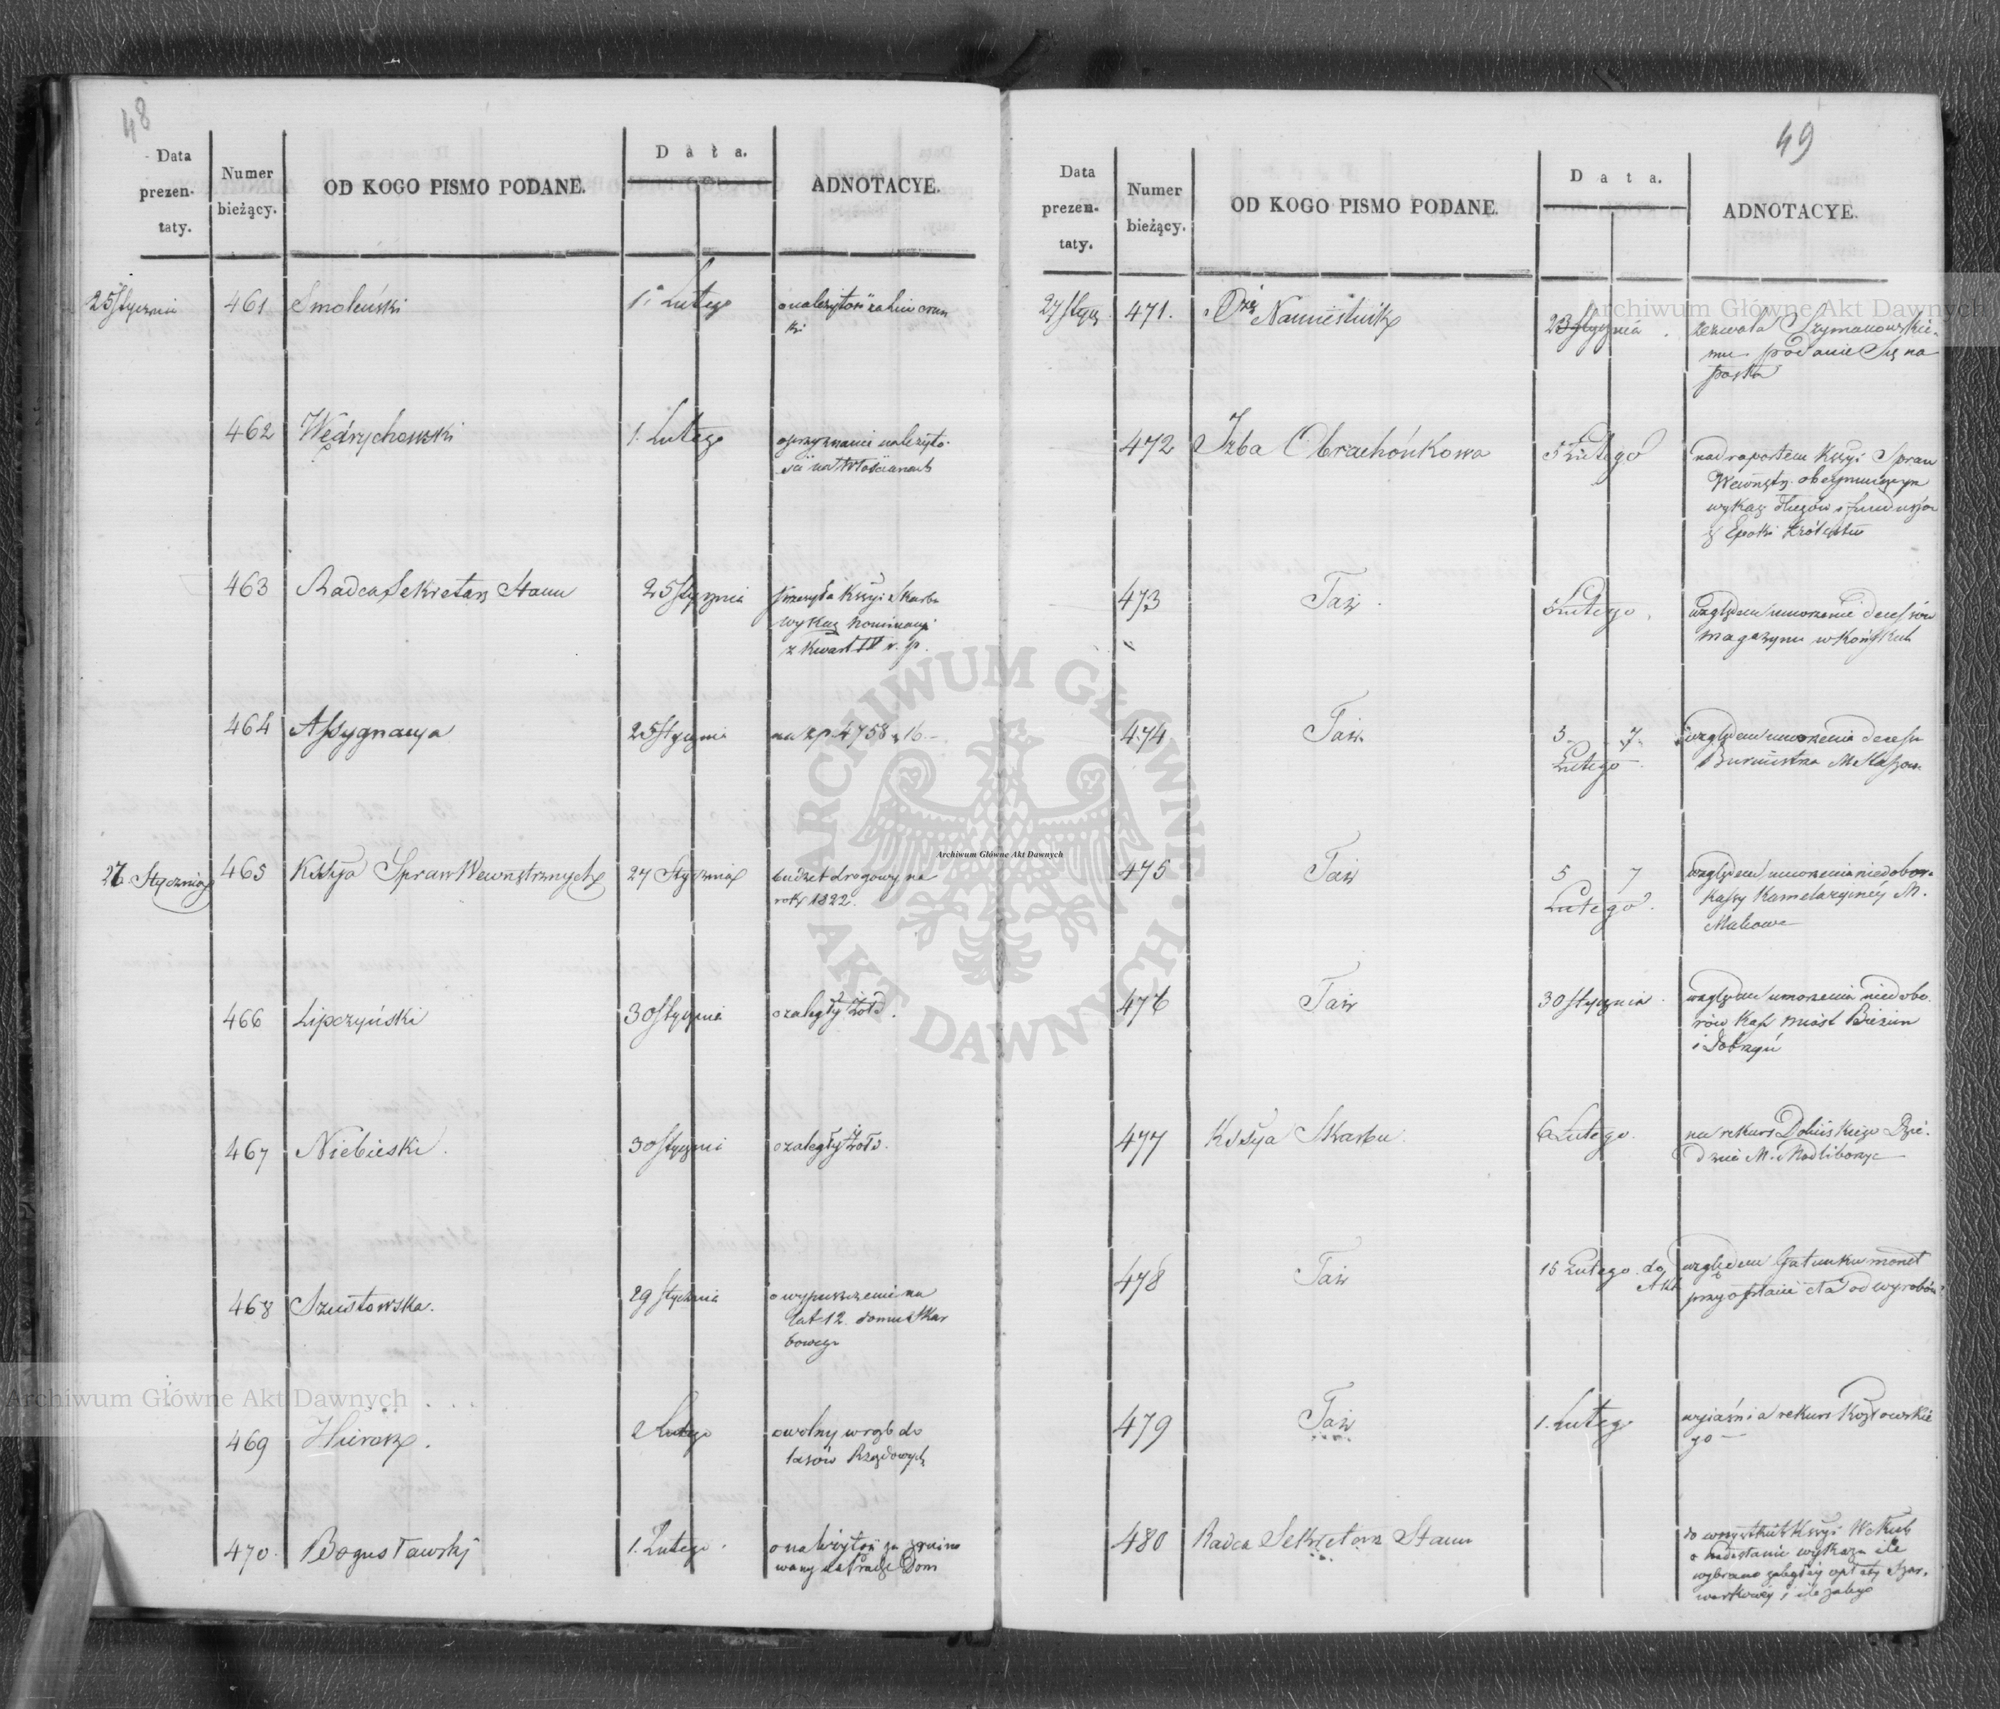 48
Data
prezen-
taty.
Numer
bieżący.
OD KOGO PISMO PODANE.
Data.
ADNOTACYE.
25 Stycznia 461 Smoleński 1. Lutego o należytość
462 Wędrychowski 1. Lutego o przyznanie należyto-
ści na Włościanach
463 Radca Sekretarz Stanu 25 Stycznia przesyła Kssyi Skarbu
wykaz nominacyi
z kwart IV r. p.
464 Assygnacya 25 Stycznia na zp. 4758 g 16
Stycznia 465 Kssya Spraw Wewnętrznych 27 Stycznia budżet drogowy na
rok 1822.
466 Lipczyński 30 Stycznia o zaległy żołd.
467 Niebieski. 30 Stycznia o zaległy żołd.
468 Szustowska. 29 Stycznia o wypuszczenie na
lat 12 domu Skar
bowego
469 2 Lutego o wolny wrąb do
lasów Rządowych
470. Bogusławski 1. Lutego. o należytość za zruino
wany na Pradze Dom
49
Data
prezen-
taty.
Numer
bieżący.
OD KOGO PISMO PODANE.
Data.
ADNOTACYE.
27 Stycz 471. Xże Namiestnik Stycznia zezwala Szymanowskie-
mu podanie się na
posła
472 Izba Obrachónkowa 5 Lutego nad raportem Kssyi Spraw
Wewnętrz. obejmującym
wykaz długów i funduszów
z Epoki Królestw
473 Taż. Lutego. względem umorzenia defektów
magazynu w Końskich
474 Taż 5 7 względem umorzenia defektu
Lutego Burmistrza M.
475 Taż 5 7 względem umorzenia niedobor.
Lutego. Kassy Kameralnéy M.
Makowa
476 Taż 30 Stycznia względem umorzenia niedobo
rów Kass miast Bieżuń
i Dobrzyń
477 Kssya Skarbu. 6 Lutego. na rekurs Dolińskiego Dzie-
dzica M. Modliborzyc
478 Taż 15 Lutego do względem Gatunku monet
Akt przy opłacie cła od wyrobów
479 Taż 1. Lutego wyjaśnia rekurs Kozłowskie
go
480 Radca Sekretarz Stanu do wszystkich Kssyi Wdzkich
o nadesłanie wykazu ile
wybrano zaległéy opłaty Szar-
warkowéy i ile zalega
Archiwum Główne Akt Dawnych
ARCHIWUM GŁÓWNE AKT DAWNYCH
Archiwum Główne Akt Dawnych
Archiwum Główne Akt Dawnych